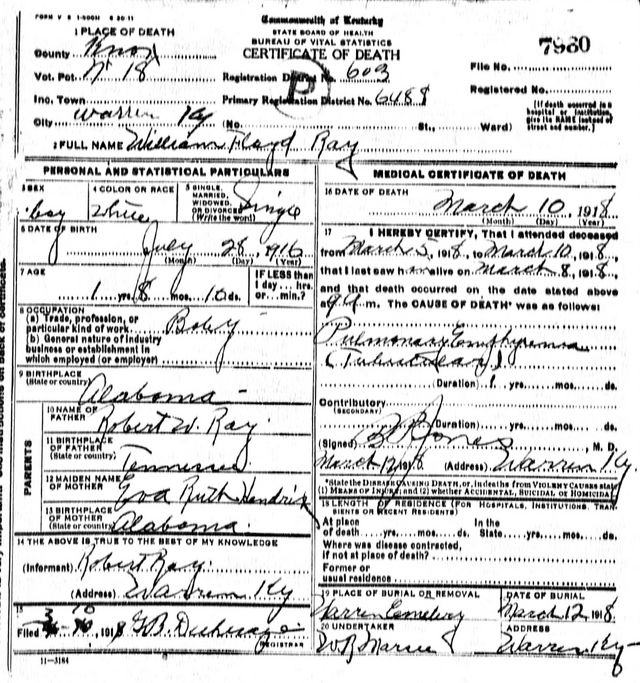 FORM V S 1-500M 6 20-11
Commonwealth of Kentucky
STATE BOARD OF HEALTH
BUREAU OF VITAL STATISTICS
CERTIFICATE OF DEATH
1 PLACE OF DEATH
County Knox
Vot. Pct. No 18
Inc. Town
City Warren Ky
Registration District No. 603
Primary Registration District No. 6488
P
(No. St., Ward)
File No. 7980
Registered No.
[If death occurred in a
hospital or institution,
give its NAME instead of
street and number.]
2 FULL NAME William Floyd Ray
PERSONAL AND STATISTICAL PARTICULARS
3 SEX boy
4 COLOR OR RACE White
5 SINGLE,
MARRIED,
WIDOWED,
OR DIVORCED
(Write the word) Single
6 DATE OF BIRTH July 28, 1916
(Month) (Day) (Year)
7 AGE
1 yrs. 8 mos. 10 ds.
IF LESS than
1 day... hrs.
or... min.?
8 OCCUPATION
(a) Trade, profession, or
particular kind of work Baby
(b) General nature of industry
business or establishment in
which employed (or employer)
9 BIRTHPLACE
(State or country) Alabama
PARENTS
10 NAME OF
FATHER Robert W. Ray
11 BIRTHPLACE
OF FATHER
(State or country) Tennessee
12 MAIDEN NAME
OF MOTHER Eva Ruth Hendrix
13 BIRTHPLACE
OF MOTHER
(State or country) Alabama
14 THE ABOVE IS TRUE TO THE BEST OF MY KNOWLEDGE
(Informant) Robert Ray
(Address) Warren Ky
15
Filed 3 10, 1918 G.B.
REGISTRAR
11-3184
MEDICAL CERTIFICATE OF DEATH
16 DATE OF DEATH
March 10, 1918
(Month) (Day) (Year)
17 I HEREBY CERTIFY, That I attended deceased
from March 5, 1918, to March 10, 1918,
that I last saw him alive on March 8, 1918,
and that death occurred on the date stated above
at 9 a. m. The CAUSE OF DEATH* was as follows:
Pulmonary
(Duration) yrs. mos. ds.
Contributory
(SECONDARY)
(Duration) yrs. mos. ds.
(Signed) Jones, M. D.
March 12 1918 (Address) Warren Ky.
*State the DISEASE CAUSING DEATH, or, in deaths from VIOLENT CAUSES state
(1) MEANS OF INJURY; and (2) whether ACCIDENTAL, SUICIDAL or HOMICIDAL
18 LENGTH OF RESIDENCE (FOR HOSPITALS, INSTITUTIONS, TRAN-
SIENTS OR RECENT RESIDENTS)
At place of death yrs. mos. ds. In the State yrs. mos. ds.
Where was disease contracted,
if not at place of death?
Former or
usual residence
19 PLACE OF BURIAL OR REMOVAL
Warren Cemetery
DATE OF BURIAL
March 12 1918
20 UNDERTAKER
W.B.
ADDRESS
Warren Ky